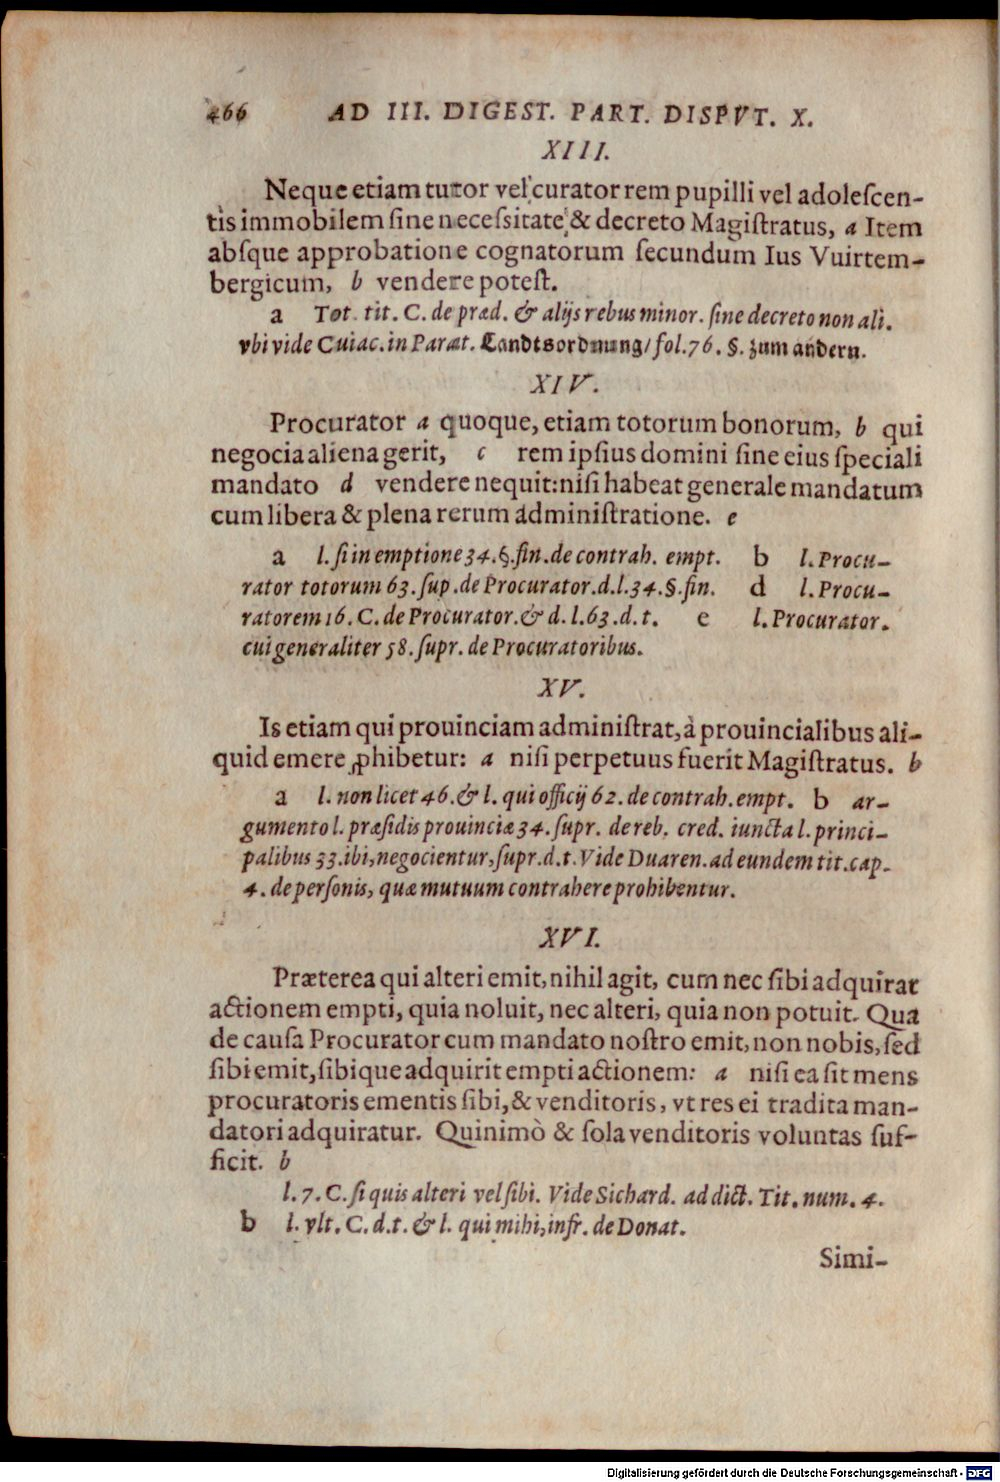 466 AD III. DIGEST. PART. DISPVT. X.
XIII.
Neque etiam tutor vel curator rem pupilli vel adoleſcen-
tis immobilem ſine neceſsitate & decreto Magiſtratus, a Item
abſque approbatione cognatorum ſecundum Ius Vuirtem-
bergicum, b vendere poteſt.
a Tot. tit. C. de præd. & alijs rebus minor. ſine decreto non ali.
vbi vide Cuiac. in Parat. Landtsordnung/ fol. 76. §. zum andern.
XIV.
Procurator a quoque, etiam totorum bonorum, b qui
negocia aliena gerit, c rem ipſius domini ſine eius ſpeciali
mandato d vendere nequit: niſi habeat generale mandatum
cum libera & plena rerum adminiſtratione. e
a l. ſi in emptione 34. §. fin. de contrah. empt. b l. Procu-
rator totorum 63. ſup. de Procurator. d. l. 34. §. fin. d l. Procu-
ratorem 16. C. de Procurator. & d. l. 63. d. t. e l. Procurator.
cui generaliter 58. ſupr. de Procuratoribus.
XV.
Is etiam qui prouinciam adminiſtrat, à prouincialibus ali-
quid emere ꝓhibetur: a niſi perpetuus fuerit Magiſtratus. b
a l. non licet 46. & l. qui officij 62. de contrah. empt. b ar-
gumento l. præſidis prouinciæ 34. ſupr. de reb. cred. iuncta l. princi-
palibus 33. ibi, negocientur, ſupr. d. t. Vide Duaren. ad eundem tit. cap.
4. de perſonis, quæ mutuum contrahere prohibentur.
XVI.
Præterea qui alteri emit, nihil agit, cum nec ſibi adquirat
actionem empti, quia noluit, nec alteri, quia non potuit. Qua
de cauſa Procurator cum mandato noſtro emit, non nobis, ſed
ſibi emit, ſibique adquirit empti actionem: a niſi ea ſit mens
procuratoris ementis ſibi, & venditoris, vt res ei tradita man-
datori adquiratur. Quinimò & ſola venditoris voluntas ſuf-
ficit. b
l. 7. C. ſi quis alteri vel ſibi. Vide Sichard. ad dict. Tit. num. 4.
b l. vlt. C. d. t. & l. qui mihi, infr. de Donat.
Simi-
Digitalisierung gefördert durch die Deutsche Forschungsgemeinschaft - DFG